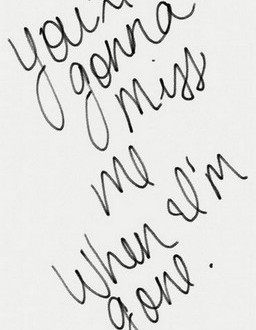 you're
gonna
miss
me
When I'm
gone.